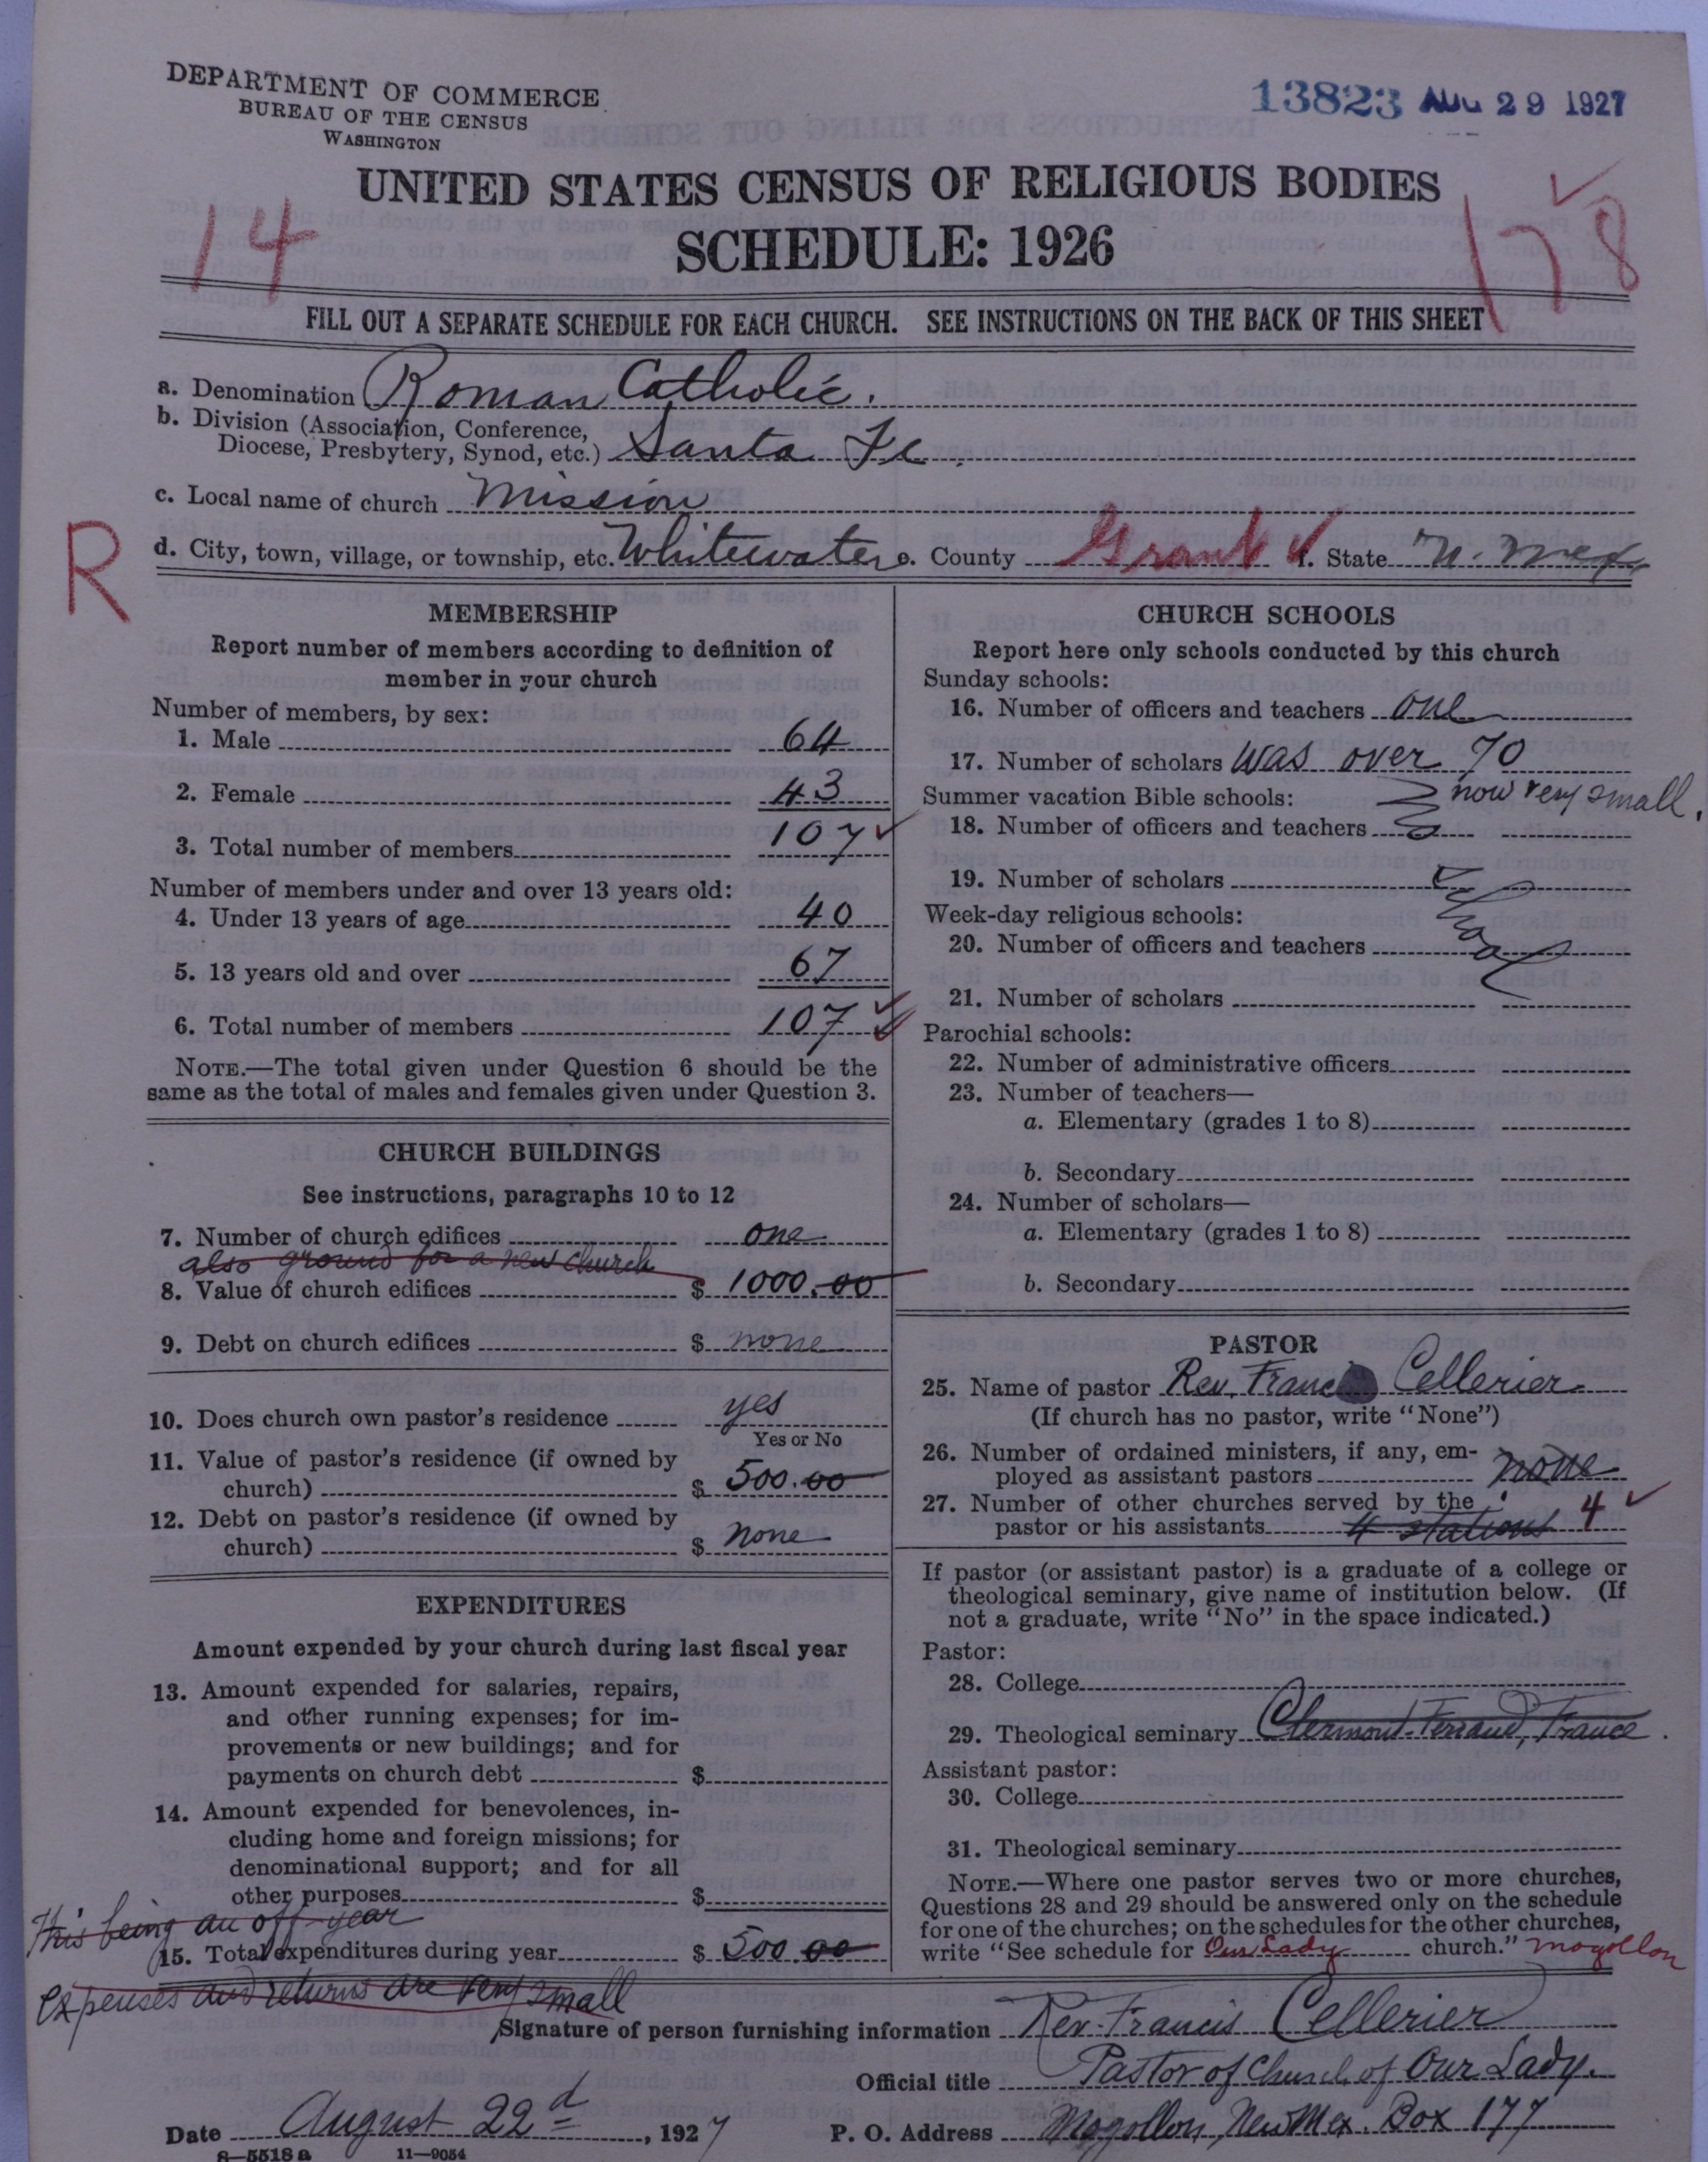 DEPARTMENT OF COMMERCE
BUREAU OF THE CENSUS
WASHINGTON
13823 AUG 29 1927
UNITED STATES CENSUS OF RELIGIOUS BODIES
SCHEDULE: 1926
14
158
FILL OUT A SEPARATE SCHEDULE FOR EACH CHURCH. SEE INSTRUCTIONS ON THE BACK OF THIS SHEET
a. Denomination Roman Catholic.
b. Division (Association, Conference,
Diocese, Presbytery, Synod, etc.) Santa Fe.
c. Local name of church Mission
R
d. City, town, village, or township, etc. Whitewater e. County Grant ✓ f. State N. Mex.
MEMBERSHIP
Report number of members according to definition of
member in your church
Number of members, by sex:
1. Male 64
2. Female 43
3. Total number of members 107 ✓
Number of members under and over 13 years old:
4. Under 13 years of age 40
5. 13 years old and over 67
6. Total number of members 107 ✓
NOTE.—The total given under Question 6 should be the
same as the total of males and females given under Question 3.
CHURCH BUILDINGS
See instructions, paragraphs 10 to 12
7. Number of church edifices one
also ground for a new church
8. Value of church edifices $ 1000.00
9. Debt on church edifices $ none
10. Does church own pastor's residence yes
Yes or No
11. Value of pastor's residence (if owned by
church) $ 500.00
12. Debt on pastor's residence (if owned by
church) $ none
EXPENDITURES
Amount expended by your church during last fiscal year
13. Amount expended for salaries, repairs,
and other running expenses; for im-
provements or new buildings; and for
payments on church debt $
14. Amount expended for benevolences, in-
cluding home and foreign missions; for
denominational support; and for all
other purposes $
This being an off-year
15. Total expenditures during year $ 500.00
expenses and returns are very small
CHURCH SCHOOLS
Report here only schools conducted by this church
Sunday schools:
16. Number of officers and teachers one
17. Number of scholars was over 70
now very small.
Summer vacation Bible schools:
18. Number of officers and teachers
19. Number of scholars
Week-day religious schools:
20. Number of officers and teachers
21. Number of scholars
Parochial schools:
22. Number of administrative officers
23. Number of teachers—
a. Elementary (grades 1 to 8)
b. Secondary
24. Number of scholars—
a. Elementary (grades 1 to 8)
b. Secondary
PASTOR
25. Name of pastor Rev. Francis Cellerier
(If church has no pastor, write "None")
26. Number of ordained ministers, if any, em-
ployed as assistant pastors none
27. Number of other churches served by the
pastor or his assistants 4 stations 4 ✓
If pastor (or assistant pastor) is a graduate of a college or
theological seminary, give name of institution below. (If
not a graduate, write "No" in the space indicated.)
Pastor:
28. College
29. Theological seminary Clermont-Ferrand, France.
Assistant pastor:
30. College
31. Theological seminary
NOTE.—Where one pastor serves two or more churches,
Questions 28 and 29 should be answered only on the schedule
for one of the churches; on the schedules for the other churches,
write "See schedule for Our Lady church." Mogollon
Signature of person furnishing information Rev. Francis Cellerier
Official title Pastor of Church of Our Lady.
Date August 22d, 1927 P. O. Address Mogollon, New Mex. Box 177
8—5518a 11—9054